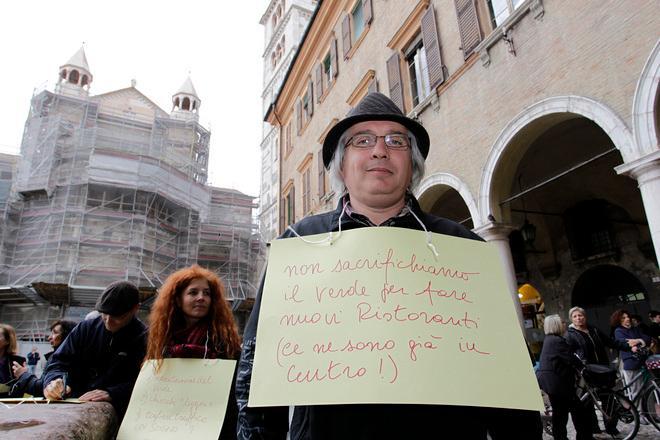 non sacrifichiamo
il verde per fare
nuovi Ristoranti
(ce ne sono già in
centro!)